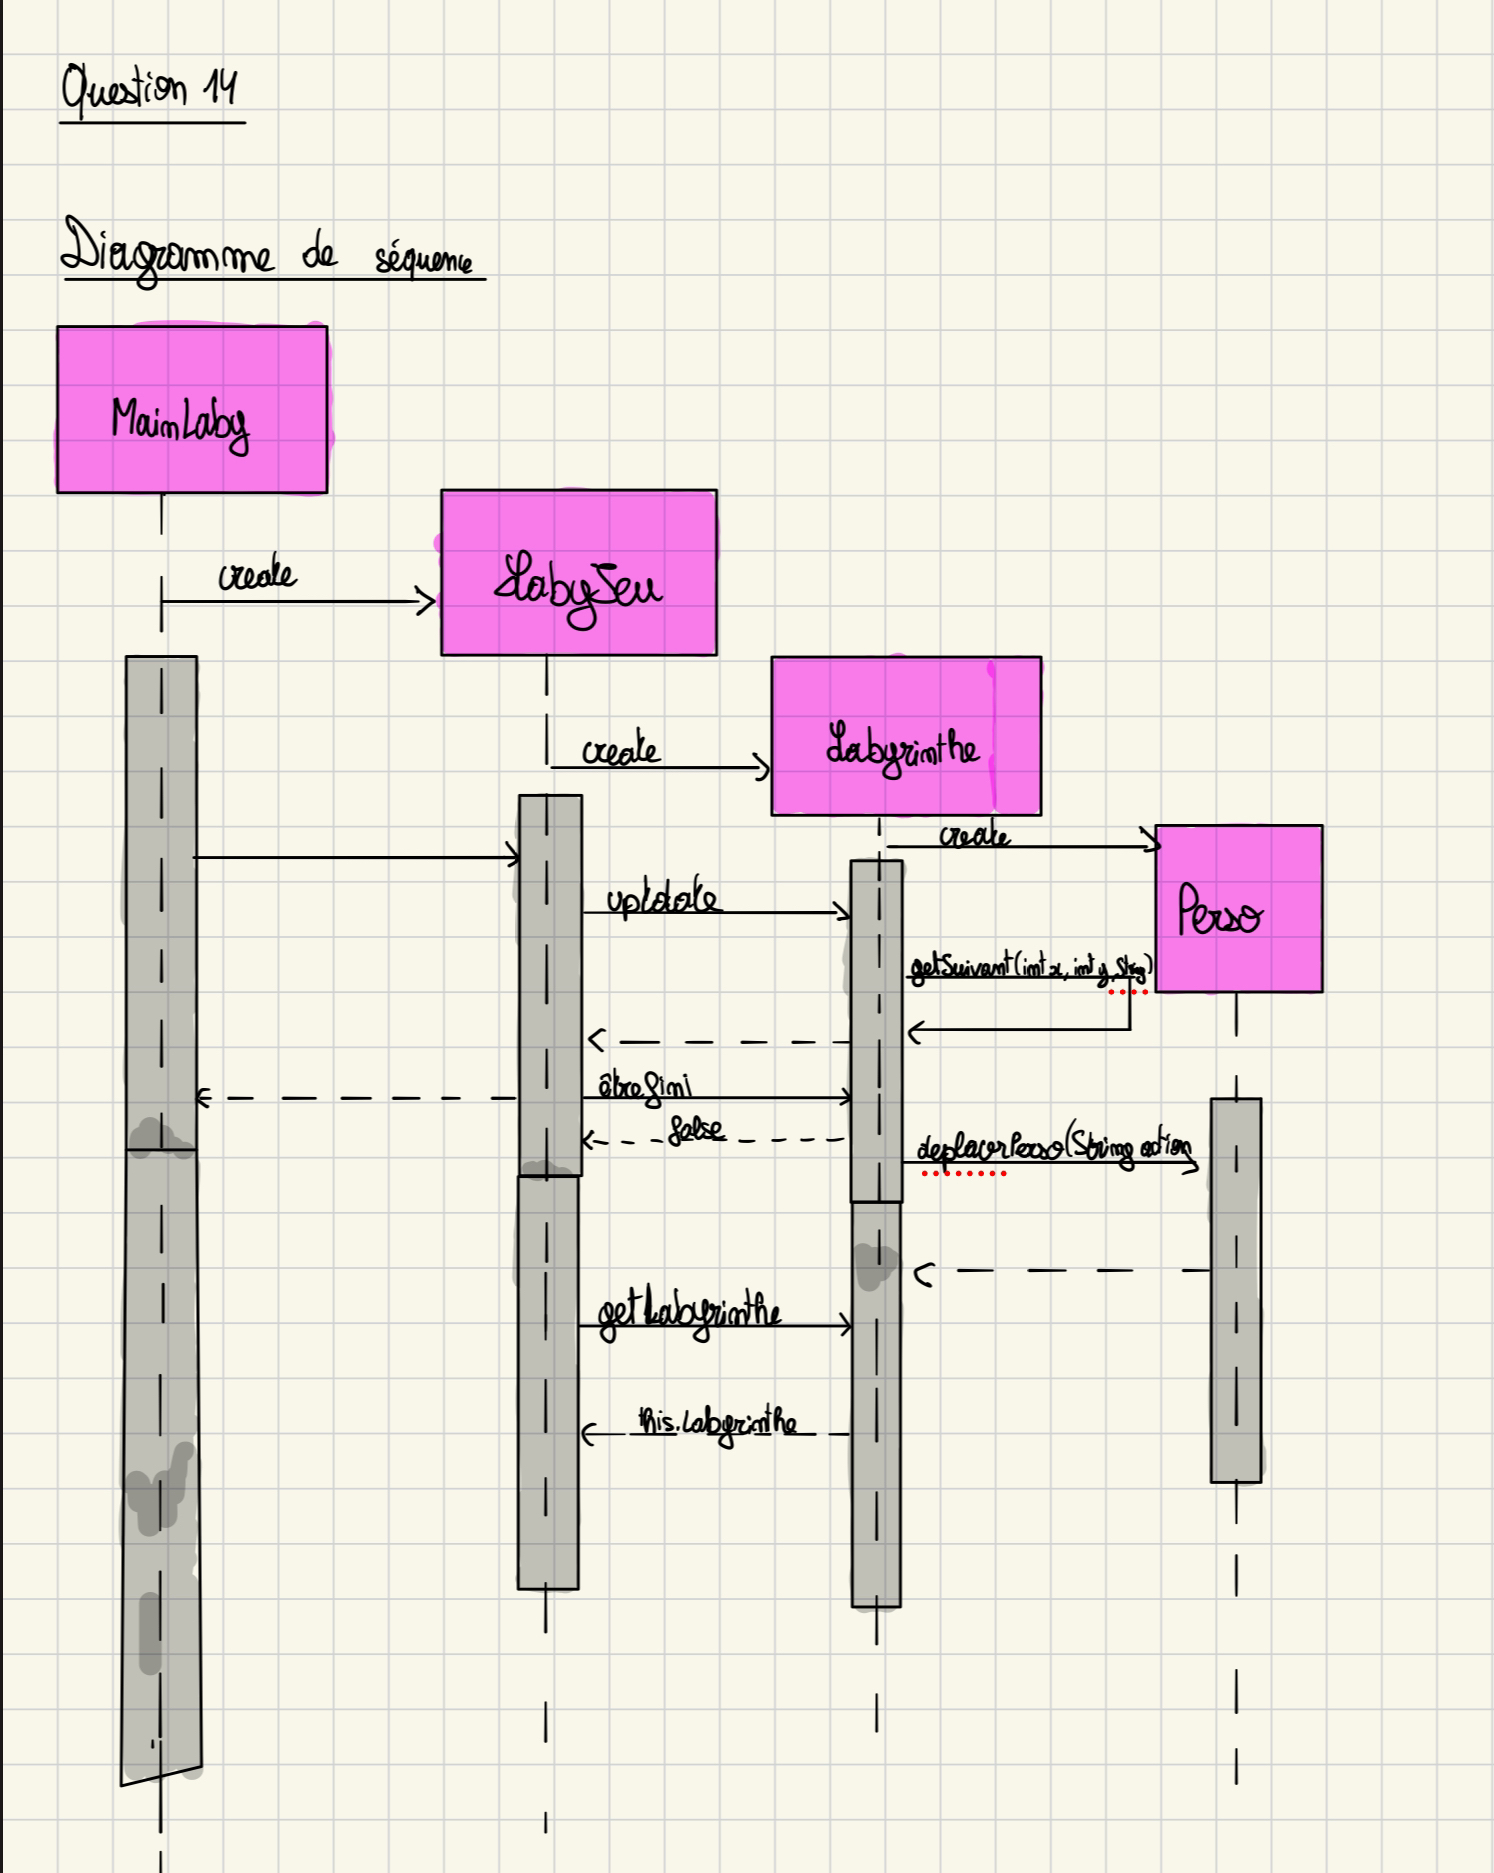 Question 14
Diagramme de séquence
MainLaby
create
LabyJeu
create
Labyrinthe
create
Perso
update
getSuivant(int x, int y, String)
être fini
false
deplacerPerso(String action
getLabyrinthe
this.Labyrinthe